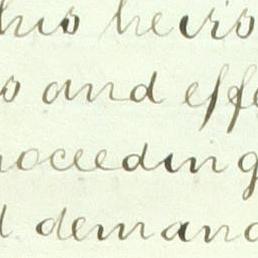 his heirs
s and effe
roceeding
d demand